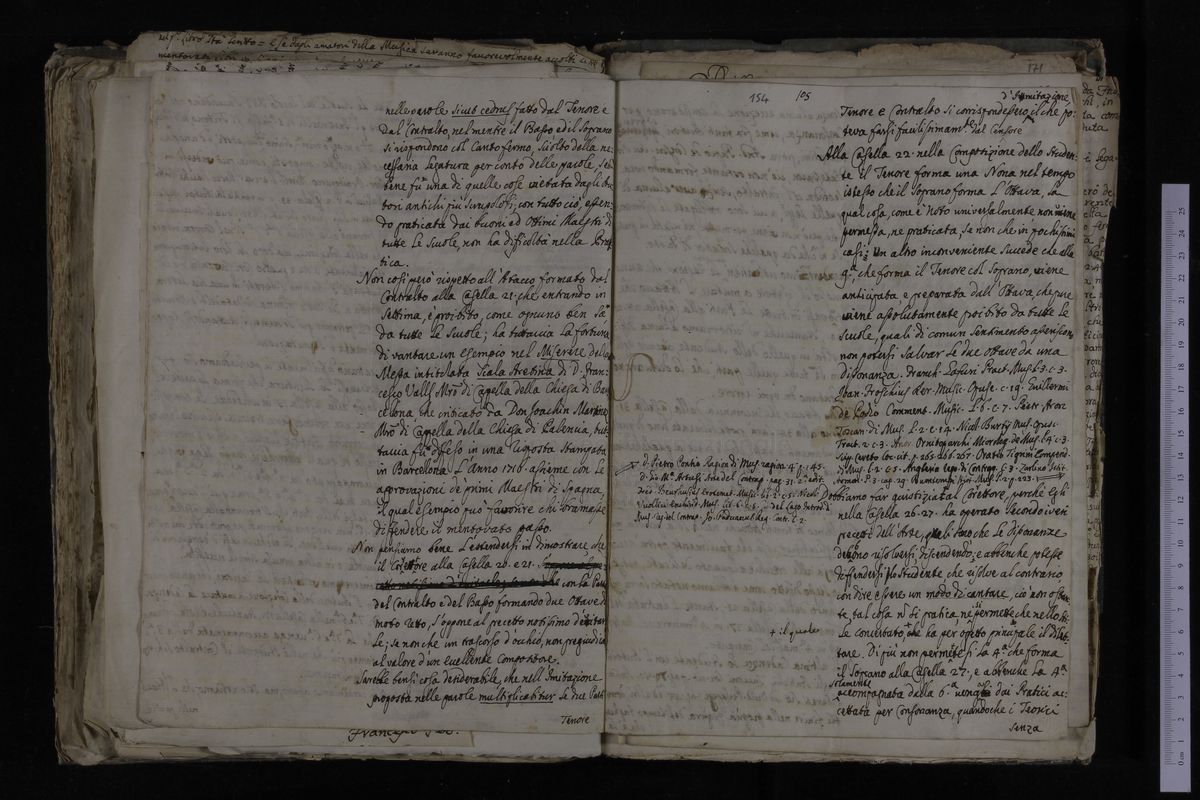 nelle parole sicut cedrus fatto dal Tenore e
dal Contralto, nel mentre il Basso ed il Soprano
si rispondono col Canto fermo, sciolto della ne-
cessaria Legatura per conto delle parole. Seb-
bene fu una di quelle cose vietata dagli Au-
tori antichi più scrupolosi, con tutto ciò, essen-
do praticata dai buoni ed Ottimi Maestri di
tutte le Scuole, non ha difficoltà nella Prat-
tica.
Non così però rispetto all'Attacco formato dal
Contralto alla Casella 21. che entrando in
Settima, è proibito, come ognuno ben sà
da tutte le Scuole; ha tuttavia la fortuna
di vantare un esempio nel Miserere della
Messa intitolata Scala Aretina di D. Fran-
cesco Valls Mro di Capella della Chiesa di Bar-
celona che criticato da Don Joachin Martinez
Mro di Capella della Chiesa di Palencia, tut-
tavia fu difeso in una Risposta stampata
in Barcellona l'anno 1716. assieme con le
approvazioni de primi Maestri di Spagna,
il qual esempio può favorire chi bramasse
diffendere il mentovato passo.
Non pensiamo bene l'estendersi in dimostrare che
il Corettore alla Casella 20. e 21.
con la Parte
del Contralto e del Basso formando due Ottave di
moto retto, s'oppone al precetto notissimo d'evitar-
le; se non che un trascorso d'occhio, non pregiudica
al valore d'un eccellente Compositore.
Sarebbe bensì cosa desiderabile, che nell'Imitazione
proposta nelle parole multiplicabitur le due Parti
Tenore
171
154 105
d'Imitazione
Tenore e Contralto si corrispondessero, il che po-
teva farsi facilissimamte dal Censore
Alla Casella 22. nella Composizione dello Studen-
te il Tenore forma una Nona nel tempo
istesso che il Soprano forma l'Ottava, la
qual cosa, come è Noto universalmente non viene
permessa, ne praticata, se non che in pochissimi
casi; Un altro inconveniente succede che alla
9.a che forma il Tenore col Soprano, viene
anticipata e preparata dall'Ottava, che pure
viene assolutamente proibito da tutte le
Scuole, quali di comun sentimento asseriscono
non potersi salvar le due Ottave da una
disonanza. Franch. Gafuri Pract. Mus. l. 3. c. 3.
Joan. Froschius Rer. Music. Opusc. c. 19. Guillermi
de Podio Comment. Music. l. 6. c. 7. Pietr. Aron
Toscan. di Mus. l. 2. c. 14. Nicol. Burtij Mus. Opusc.
Tract. 2. c. 3. Andr. Ornitoparchi Microlog. de Mus. l. 4. c. 3.
loc. cit. p. 265. 266. 267. Oratio Tigrini Compend.
di Mus. l. 2. c. 5. Angleria Rego. di Contrap. C. 8. Zarlino Istit.
Armon. P. 3. cap. 29.
D. Pietro Pontio Ragion. di Mus. ragion. 4. p. 145.
D. Gio. Ma. Artusi Arte del Contrap. pag. 31. 2.a edit.
Dobbiamo far giustizia al Corettore, perchè Egli
nella Casella 26. 27. ha operato secondo i veri
precetti dell'Arte, quali sono che le Disonanze
devono risolversi discendendo; e abbenche potesse
diffendersi lo Studente, che risolve al contrario
con dire essere un modo di cantare, ciò non ostan-
te, tal cosa non si pratica, ne si permette che nello Sti-
le Concertato, che ha per oggetto principale il dilet-
+ il quale
tare. Di più non permettesi la 4.a che forma
il Soprano alla Casella 27. e abbenche la 4.a
solamente
accompagnata dalla 6.a venga dai Pratici ac-
cettata per Consonanza, quandoche i Teorici
senza